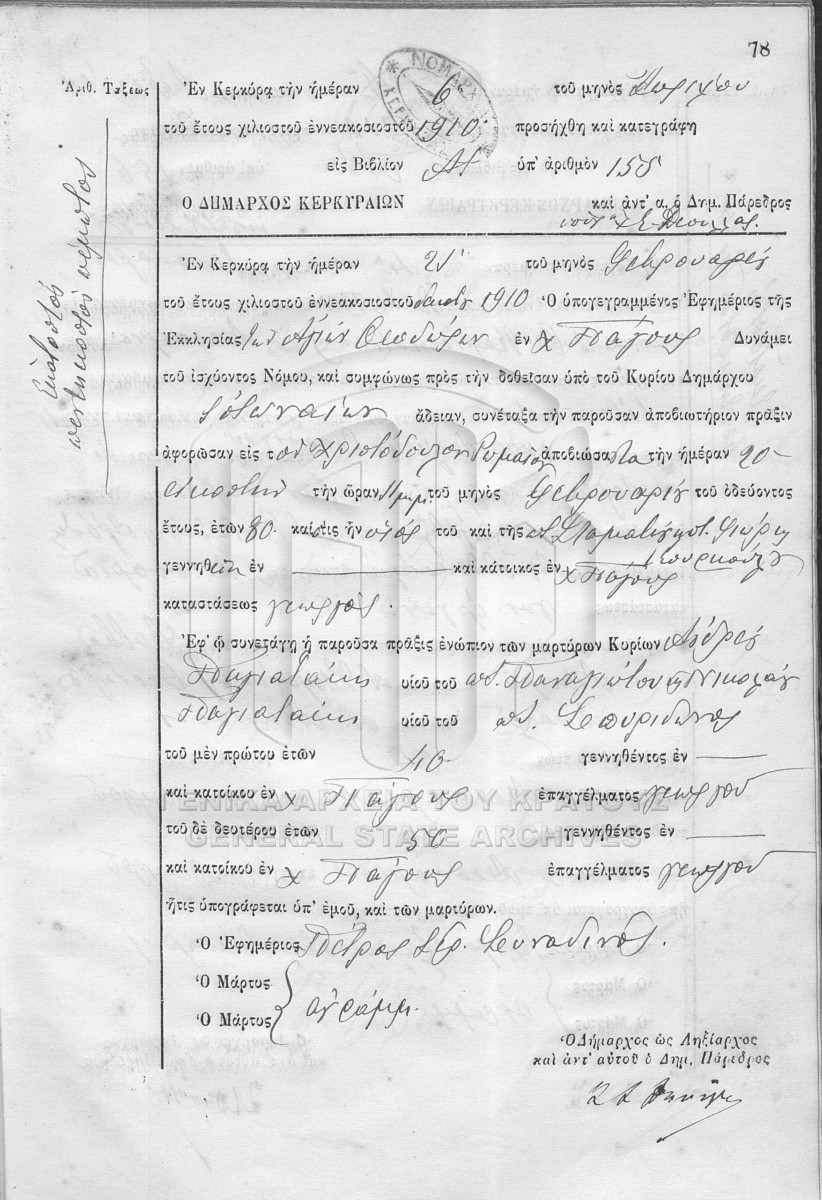 78
Ἀριθ. Τάξεως
Ἑκατοστὸν
πεντηκοστὸν πέμπτος
Ἐν Κερκύρᾳ τὴν ἡμέραν 6 τοῦ μηνὸς Ἀπριλίου
τοῦ ἔτους χιλιοστοῦ ἐννεακοσιοστοῦ 1910 προσήχθη καὶ κατεγράφη
εἰς Βιβλίον Α' ὑπ' ἀριθμὸν 155
Ο ΔΗΜΑΡΧΟΣ ΚΕΡΚΥΡΑΙΩΝ καὶ ἀντ' α. ὁ Δημ. Πάρεδρος
Ἐν Κερκύρᾳ τὴν ἡμέραν 21 τοῦ μηνὸς Φεβρουαρίου
τοῦ ἔτους χιλιοστοῦ ἐννεακοσιοστοῦ δεκάτου 1910 Ὁ ὑπογεγραμμένος Ἐφημέριος τῆς
Ἐκκλησίας τῶν Ἁγίων Θεοδώρων ἐν χ Πάγους Δυνάμει
τοῦ ἰσχύοντος Νόμου, καὶ συμφώνως πρὸς τὴν δοθεῖσαν ὑπὸ τοῦ Κυρίου Δημάρχου
ἄδειαν, συνέταξα τὴν παροῦσαν ἀποβιωτήριον πρᾶξιν
ἀφορῶσαν εἰς τὸν Χριστόδουλον Ρωμαῖον ἀποβιώσαντα τὴν ἡμέραν 20
εἰκοστὴν τὴν ὥραν 11 μ.μ. τοῦ μηνὸς Φεβρουαρίου τοῦ ὁδεύοντος
ἔτους, ἐτῶν 80. καὶ ὅστις ἦν υἱὸς τοῦ καὶ τῆς π. Σταματίου
γεννηθεὶς ἐν — καὶ κάτοικος ἐν χ Πάγους
καταστάσεως γεωργὸς.
Ἐφ' ᾧ συνετάγη ἡ παροῦσα πρᾶξις ἐνώπιον τῶν μαρτύρων Κυρίων Ἀνδρέου
Παγιατάκης υἱοῦ τοῦ π. Παναγιώτου καὶ Νικολάου
Παγιατάκης υἱοῦ τοῦ π. Σπυρίδωνος
τοῦ μὲν πρώτου ἐτῶν 40 γεννηθέντος ἐν —
καὶ κατοίκου ἐν χ Πάγους ἐπαγγέλματος γεωργοῦ
τοῦ δὲ δευτέρου ἐτῶν 50 γεννηθέντος ἐν —
καὶ κατοίκου ἐν χ Πάγους ἐπαγγέλματος γεωργοῦ
ἥτις ὑπογράφεται ὑπ' ἐμοῦ, καὶ τῶν μαρτύρων.
Ὁ Ἐφημέριος Πέτρος Ἱερ. Συναδινός.
Ὁ Μάρτυς
Ὁ Μάρτυς ἀγράμμ.
Ὁ Δήμαρχος ὡς Ληξίαρχος
καὶ ἀντ' αὐτοῦ ὁ Δημ. Πάρεδρος
ΓΕΝΙΚΑ ΑΡΧΕΙΑ ΤΟΥ ΚΡΑΤΟΥΣ
GENERAL STATE ARCHIVES